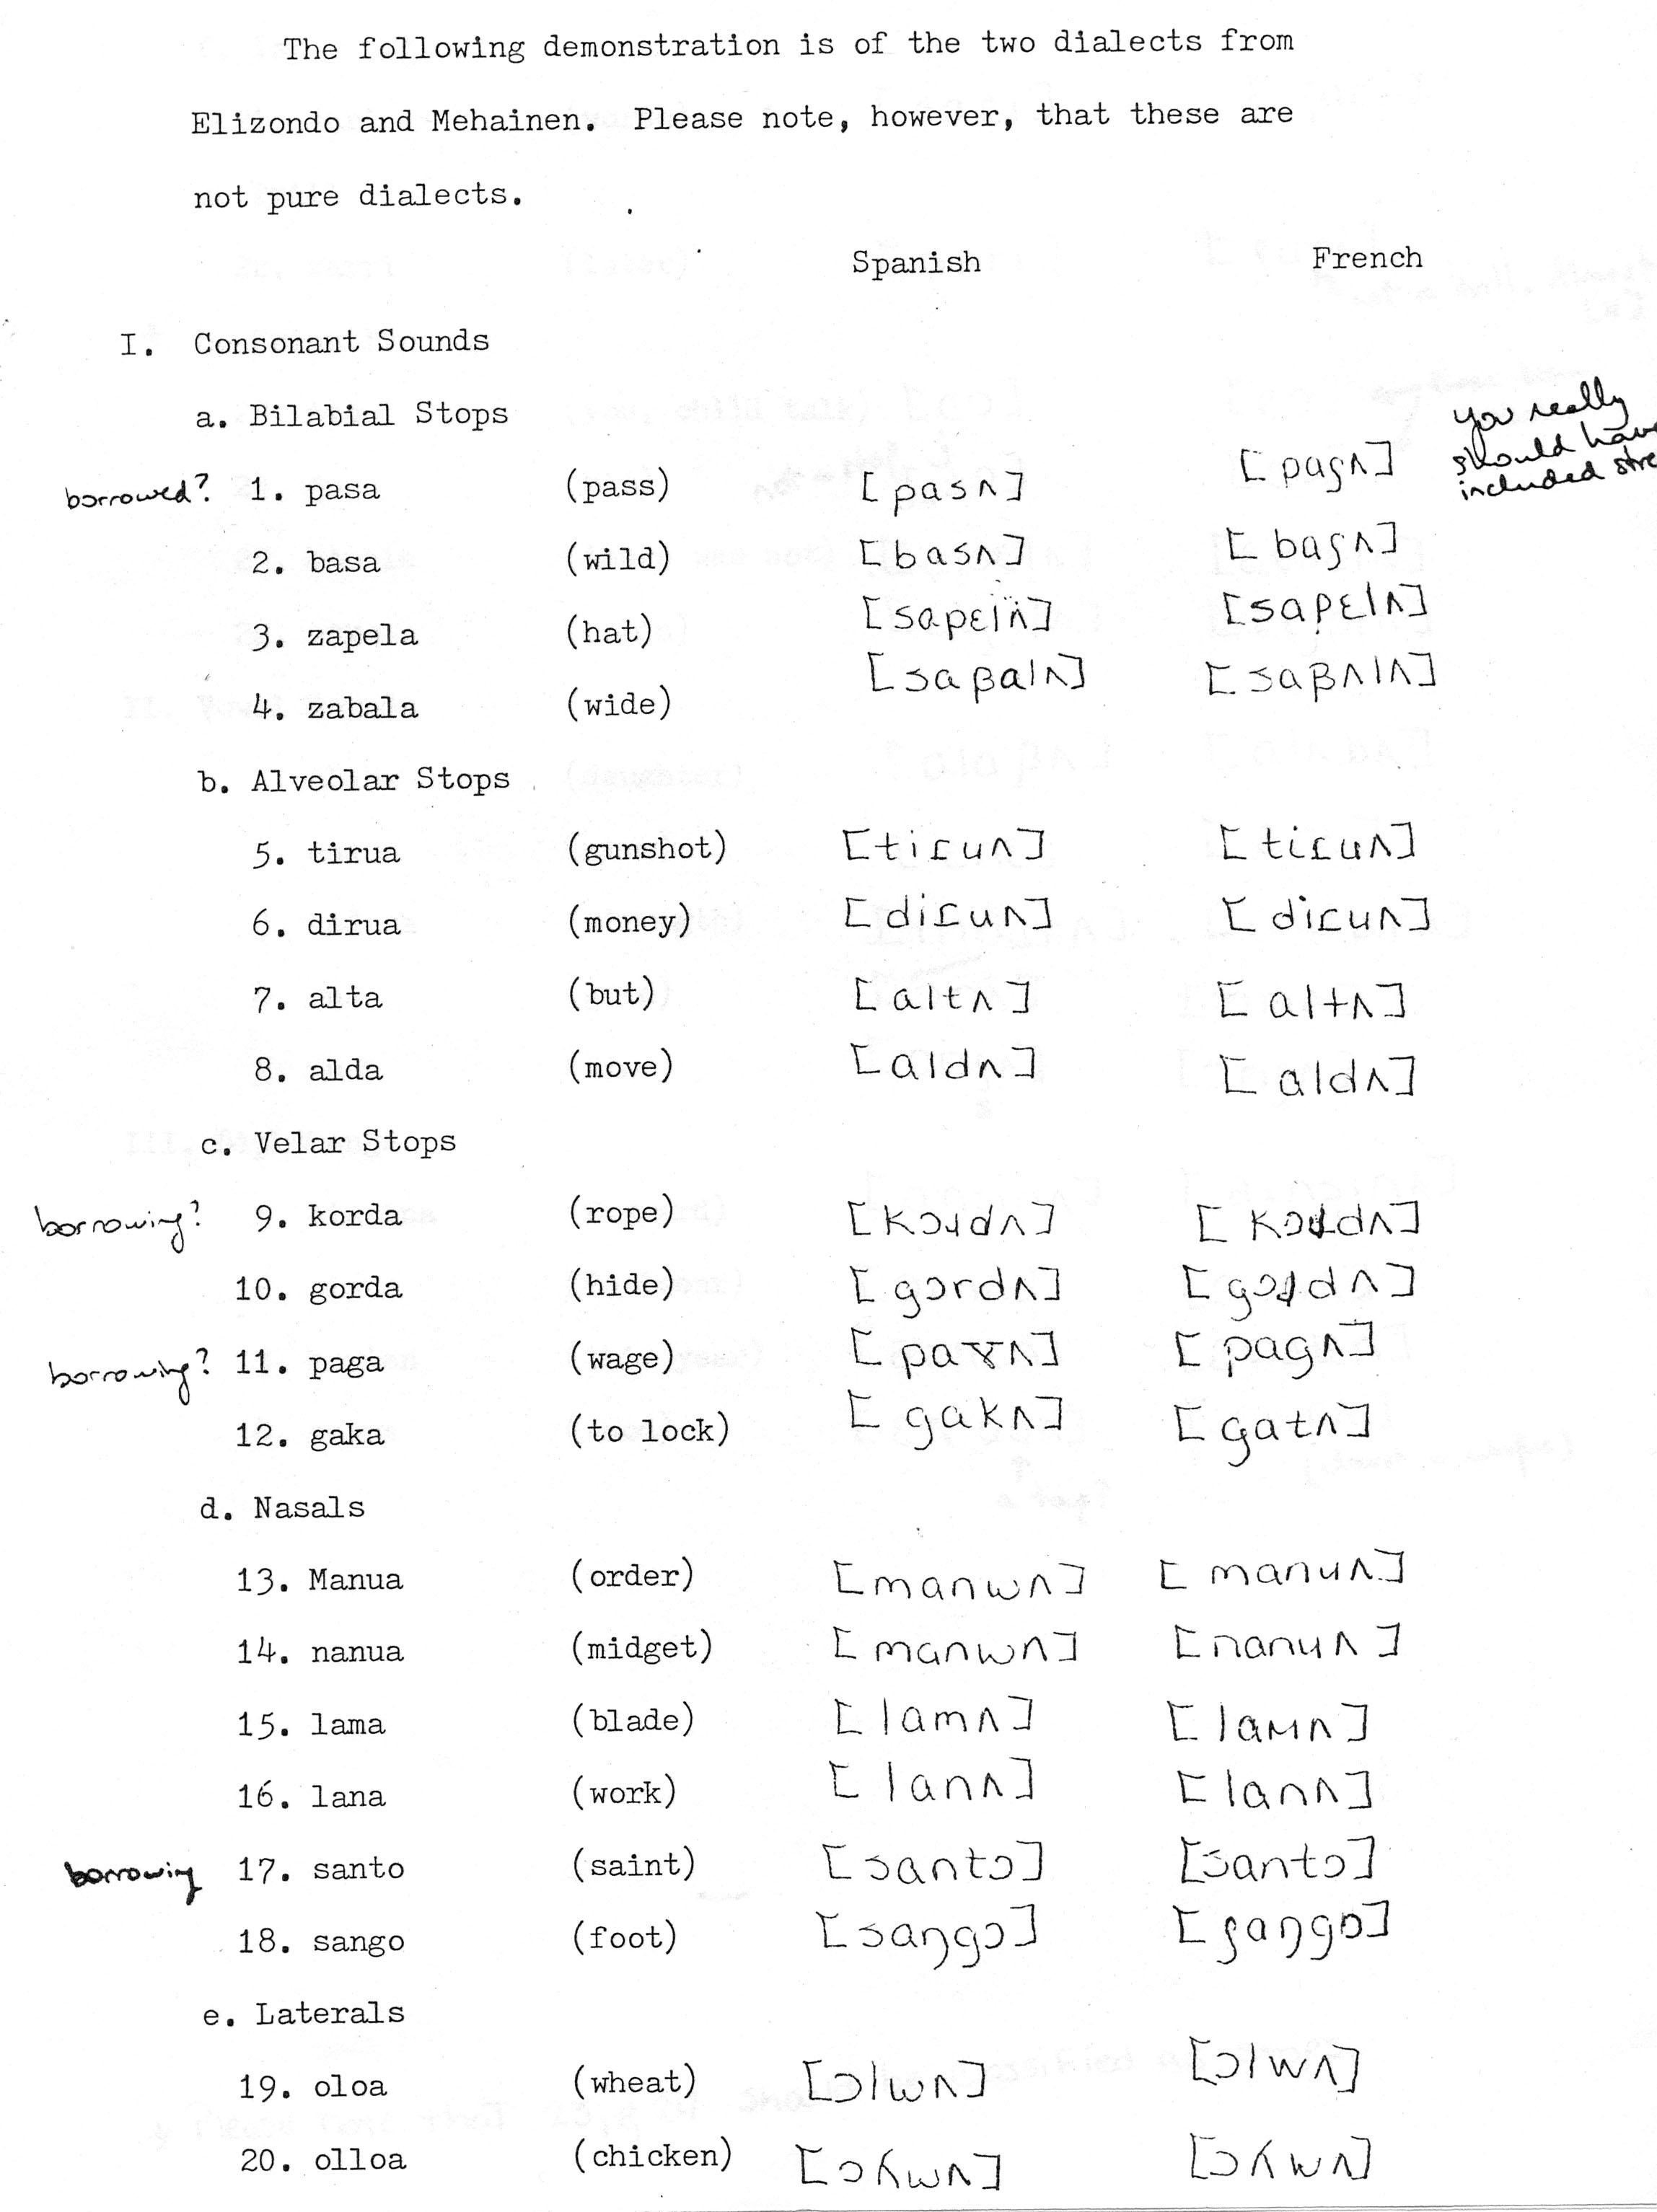 The following demonstration is of the two dialects from
Elizondo and Mehainen. Please note, however, that these are
not pure dialects.
Spanish French
I. Consonant Sounds
a. Bilabial Stops
you really
should have
included
borrowed? 1. pasa (pass) [pasʌ] [paʂʌ]
2. basa (wild) [basʌ] [baʂʌ]
3. zapela (hat) [sapɛlʌ] [sapɛlʌ]
4. zabala (wide) [saβalʌ] [saβʌlʌ]
b. Alveolar Stops
5. tirua (gunshot) [tiɾuʌ] [tiɾuʌ]
6. dirua (money) [diɾuʌ] [diɾuʌ]
7. alta (but) [altʌ] [altʌ]
8. alda (move) [aldʌ] [aldʌ]
c. Velar Stops
borrowing? 9. korda (rope) [kɔɹdʌ]
10. gorda (hide) [gɔrdʌ]
borrowing? 11. paga (wage) [paɣʌ] [pagʌ]
12. gaka (to lock) [gakʌ] [gatʌ]
d. Nasals
13. Manua (order) [manwʌ] [manuʌ]
14. nanua (midget) [manwʌ] [nanuʌ]
15. lama (blade) [lamʌ] [lamʌ]
16. lana (work) [lanʌ] [lanʌ]
borrowing 17. santo (saint) [santɔ] [santɔ]
18. sango (foot) [saŋgɔ] [ʂaŋgɔ]
e. Laterals
19. oloa (wheat) [ɔlwʌ] [ɔlwʌ]
20. olloa (chicken) [ɔʎwʌ] [ɔʎwʌ]